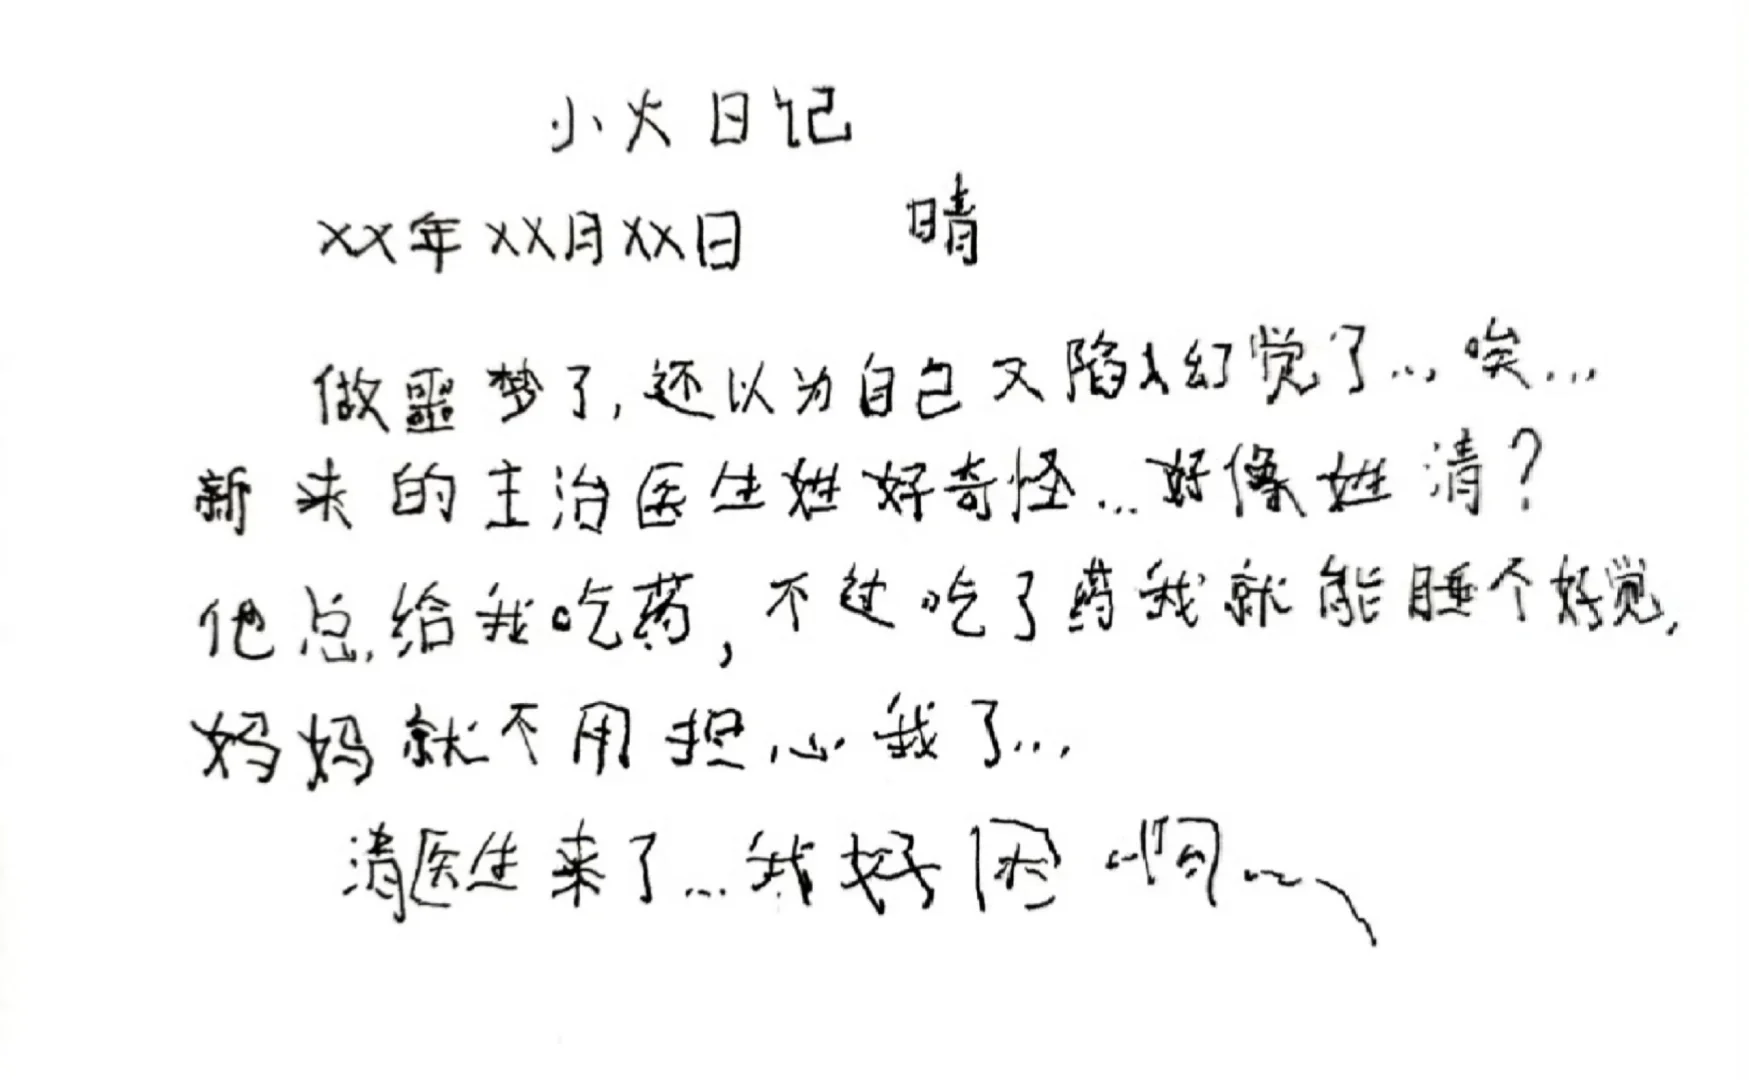 小火日记
XX年XX月XX日 晴
做噩梦了,还以为自己又陷入幻觉了...唉...
新来的主治医生姓好奇怪...好像姓清?
他总给我吃药,不过吃了药我就能睡个好觉,
妈妈就不用担心我了...
清医生来了...我好困啊...